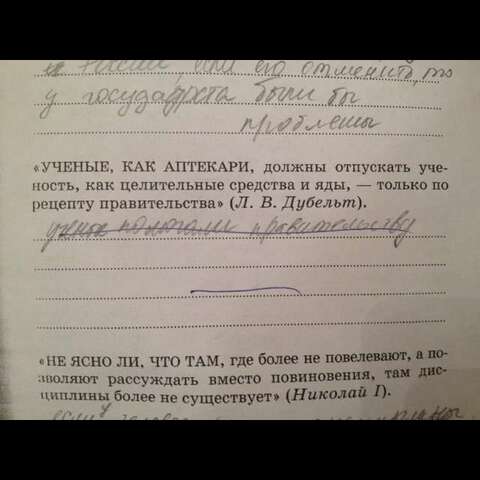 России если его отменить, то
у государства были бы
проблемы
«УЧЕНЫЕ, КАК АПТЕКАРИ, должны отпускать уче-
ность, как целительные средства и яды, — только по
рецепту правительства» (Л. В. Дубельт).
ученые помогали правительству
«НЕ ЯСНО ЛИ, ЧТО ТАМ, где более не повелевают, а по-
зволяют рассуждать вместо повиновения, там дис-
циплины более не существует» (Николай I).
если